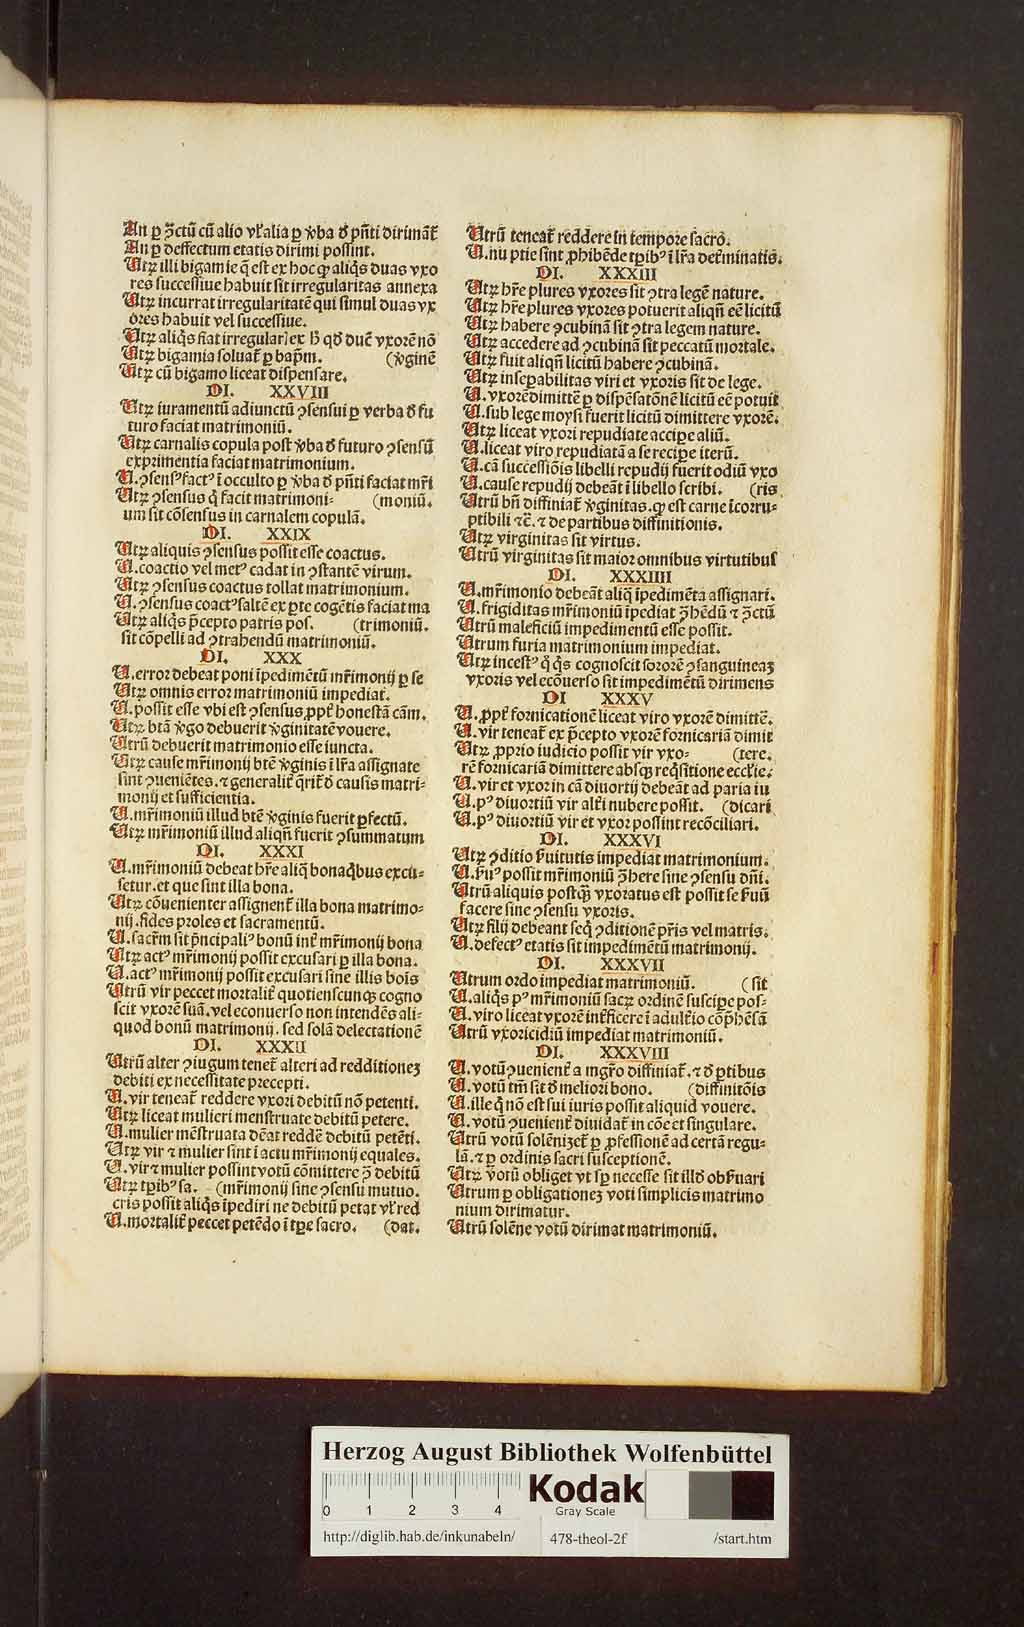 An ꝑ ꝯ̄ctū cū alio vl̓ alia ꝑ v̓ba đ pn̄ti dirimāt̄
An ꝑ deffectum etatis dirimi possint.
Utꝝ illi bigamie q̄ est ex hoc ꝙ aliq̄s duas vxo
res successiue habuit sit irregularitas annexa
Utꝝ incurrat irregularitatē qui simul duas vx
ores habuit vel successiue.
Utꝝ aliq̄s fiat irregular̓ ex hͦ qđ ducē vxorē nō
Utꝝ bigamia soluat̄ ꝑ bap̄m. (v̓ginē
Utꝝ cū bigamo liceat dispensare.
DI. XXVIII
Utꝝ iuramentū adiunctū ꝯsensui ꝑ verba đ fu
turo faciat matrimoniū.
Utꝝ carnalis copula post v̓ba đ futuro ꝯsensū
exprimentia faciat matrimonium.
U. ꝯsensꝰ factꝰ ī occulto ꝑ v̓ba đ pn̄ti faciat mr̄i
Utꝝ ꝯsensus q̄ facit matrimoni= (moniū.
um sit cōsensus in carnalem copulā.
DI. XXIX
Utꝝ aliquis ꝯsensus possit esse coactus.
U. coactio vel metꝰ cadat in ꝯstantē virum.
Utꝝ ꝯsensus coactus tollat matrimonium.
U. ꝯsensus coactꝰ saltē ex ꝑte cogētis faciat ma
Utꝝ aliq̄s p̄cepto patris pos. (trimoniū.
sit cōpelli ad ꝯtrahendū matrimoniū.
DI. XXX
U. error debeat poni īpedimētū mr̄imonij ꝑ se
Utꝝ omnis error matrimoniū impediat.
U. possit esse vbi est ꝯsensus ꝓpt̄ honestā cām.
Utꝝ btā v̓go debuerit v̓ginitatē vouere.
Utrū debuerit matrimonio esse iuncta.
Utꝝ cause mr̄imonij btē v̓ginis ī lr̄a assignate
sint ꝯueniētes. ⁊ generalit̄ q̄rit̄ đ causis matri=
monij et sufficientia.
U. mr̄imoniū illud btē v̓ginis fuerit ꝑfectū.
Utꝝ mr̄imoniū illud aliqn̄ fuerit ꝯsummatum
DI. XXXI
U. mr̄imoniū debeat hr̄e aliq̄ bona q̄bus excu=
setur. et que sint illa bona.
Utꝝ cōuenienter assignent̄ illa bona matrimo=
nij. fides proles et sacramentū.
U. sacr̄m sit p̄ncipaliꝰ bonū int̄ mr̄imonij bona
Utꝝ actꝰ mr̄imonij possit excusari ꝑ illa bona.
U. actꝰ mr̄imonij possit excusari sine illis bōis
Utrū vir peccet mortalit̄ quotienscunqꝫ cogno
scit vxorē suā. vel econuerso non intendēs ali=
quod bonū matrimonij. sed solā delectationē
DI. XXXII
Utrū alter ꝯiugum tenet̄ alteri ad redditioneꝫ
debiti ex necessitate precepti.
U. vir teneat̄ reddere vxori debitū nō petenti.
Utꝝ liceat mulieri menstruate debitū petere.
U. mulier mēstruata dēat reddē debitū petēti.
Utꝝ vir ⁊ mulier sint ī actu mr̄imonij equales.
U. vir ⁊ mulier possint votū cōmittere ꝯ̄ debitū
Utꝝ tp̄ibꝰ sa. (mr̄imonij sine ꝯsensu mutuo.
cris possit aliq̄s īpediri ne debitū petat vl̓ red
U. mortalit̄ peccet petēdo ī tp̄e sacro. (dat.
Utrū teneat̄ reddere in tempore sacro.
U. nuptie sint ꝓhibēde tp̄ibꝰ ī lr̄a det̄minatis.
DI. XXXIII
Utꝝ hr̄e plures vxores sit ꝯtra legē nature.
Utꝝ hr̄e plures vxores potuerit aliqn̄ eē licitū
Utꝝ habere ꝯcubinā sit ꝯtra legem nature.
Utꝝ accedere ad ꝯcubinā sit peccatū mortale.
Utꝝ fuit aliqn̄ licitū habere ꝯcubinā.
Utꝝ inseꝑabilitas viri et vxoris sit de lege.
U. vxorē dimittē ꝑ dispēsatōnē licitū eē potuit
U. sub lege moysi fuerit licitū dimittere vxorē.
Utꝝ liceat vxori repudiate accipe aliū.
U. liceat viro repudiatā a se recipe iterū.
U. cā successiōis libelli repudij fuerit odiū vxo
U. cause repudij debeāt ī libello scribi. (ris
Utrū bn̄ diffiniat̄ v̓ginitas. ꝙ est carne īcorru=
ptibili ⁊c̄. ⁊ de partibus diffinitionis.
Utꝝ virginitas sit virtus.
Utrū virginitas sit maior omnibus virtutibus
DI. XXXIIII
U. mr̄imonio debeāt aliq̄ īpedimēta assignari.
U. frigiditas mr̄imoniū īpediat ꝯ̄hēdū ⁊ ꝯ̄ctū
Utrū maleficiū impedimentū esse possit.
Utrum furia matrimonium impediat.
Utꝝ incestꝰ q̄ q̄s cognoscit sororē ꝯsanguineaꝫ
vxoris vel ecōuerso sit impedimētū dirimens
DI XXXV
U. ꝓpt̄ fornicationē liceat viro vxorē dimittē.
U. vir teneat̄ ex p̄cepto vxorē fornicariā dimit
Utꝝ ꝓprio iudicio possit vir vxo= (tere.
rē fornicariā dimittere absqꝫ reqͥsitione eccl̓ie.
U. vir et vxor in cā diuortij debeāt ad paria iu
U. pꝰ diuortiū vir alt̄i nubere possit. (dicari
U. pꝰ diuortiū vir et vxor possint recōciliari.
DI. XXXVI
Utꝝ ꝯditio s̓uitutis impediat matrimonium.
U. s̓uꝰ possit mr̄imoniū ꝯ̄here sine ꝯsensu dn̄i.
Utrū aliquis postqꝫ vxoratus est possit se s̓uū
facere sine ꝯsensu vxoris.
Utꝝ filij debeant seq̄ ꝯditionē pr̄is vel matris.
U. defectꝰ etatis sit impedimētū matrimonij.
DI. XXXVII
Utrum ordo impediat matrimoniū. (sit
U. aliq̄s pꝰ mr̄imoniū sacꝝ ordinē suscipe pos=
U. viro liceat vxorē int̄ficere ī adult̄io cōp̄hēsā
Utrū vxoricidiū impediat matrimoniū.
DI. XXXVIII
U. votū ꝯuenient̄ a mgr̄o diffiniat̄. ⁊ đ ꝑtibus
U. votū tm̄ sit đ meliori bono. (diffinitōis
U. ille q̄ nō est sui iuris possit aliquid vouere.
U. votū ꝯuenient̄ diuidat̄ in cōe et singulare.
Utrū votū solēnizet̄ ꝑ ꝓfessionē ad certā regu=
lā. ⁊ ꝑ ordinis sacri susceptionē.
Utꝝ votū obliget vt sp̄ necesse sit illđ obs̓uari
Utrum ꝑ obligationeꝫ voti simplicis matrimo
nium dirimatur.
Utrū solēne votū dirimat matrimoniū.
Herzog August Bibliothek Wolfenbüttel
0 1 2 3 4
Kodak
Gray Scale
http://diglib.hab.de/inkunabeln/ 478-theol-2f /start.htm